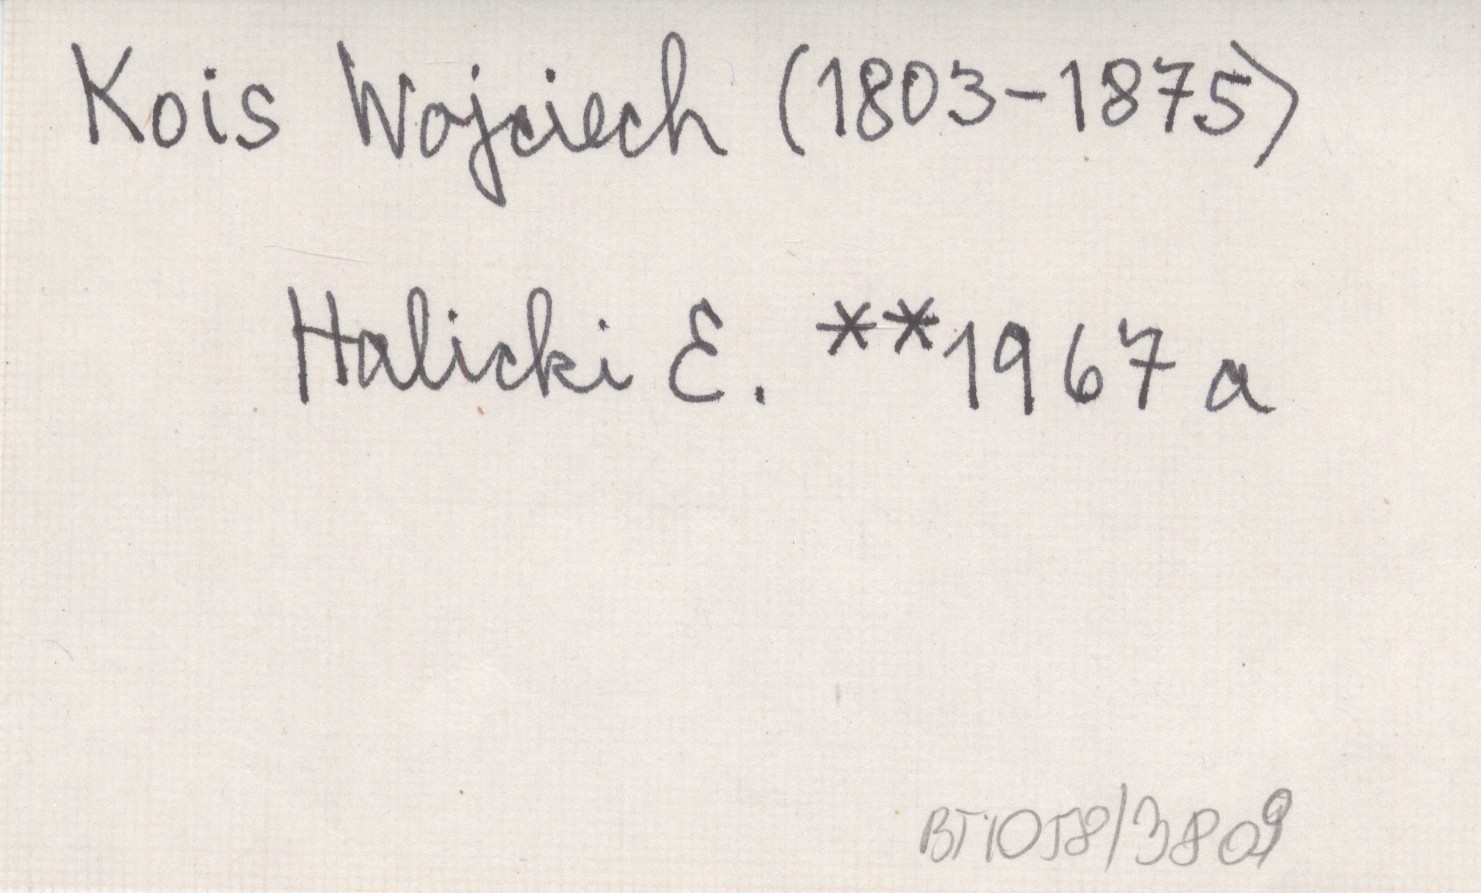 Kois Wojciech (1803-1875)
Halicki E. **1967 a
BT1058/3809